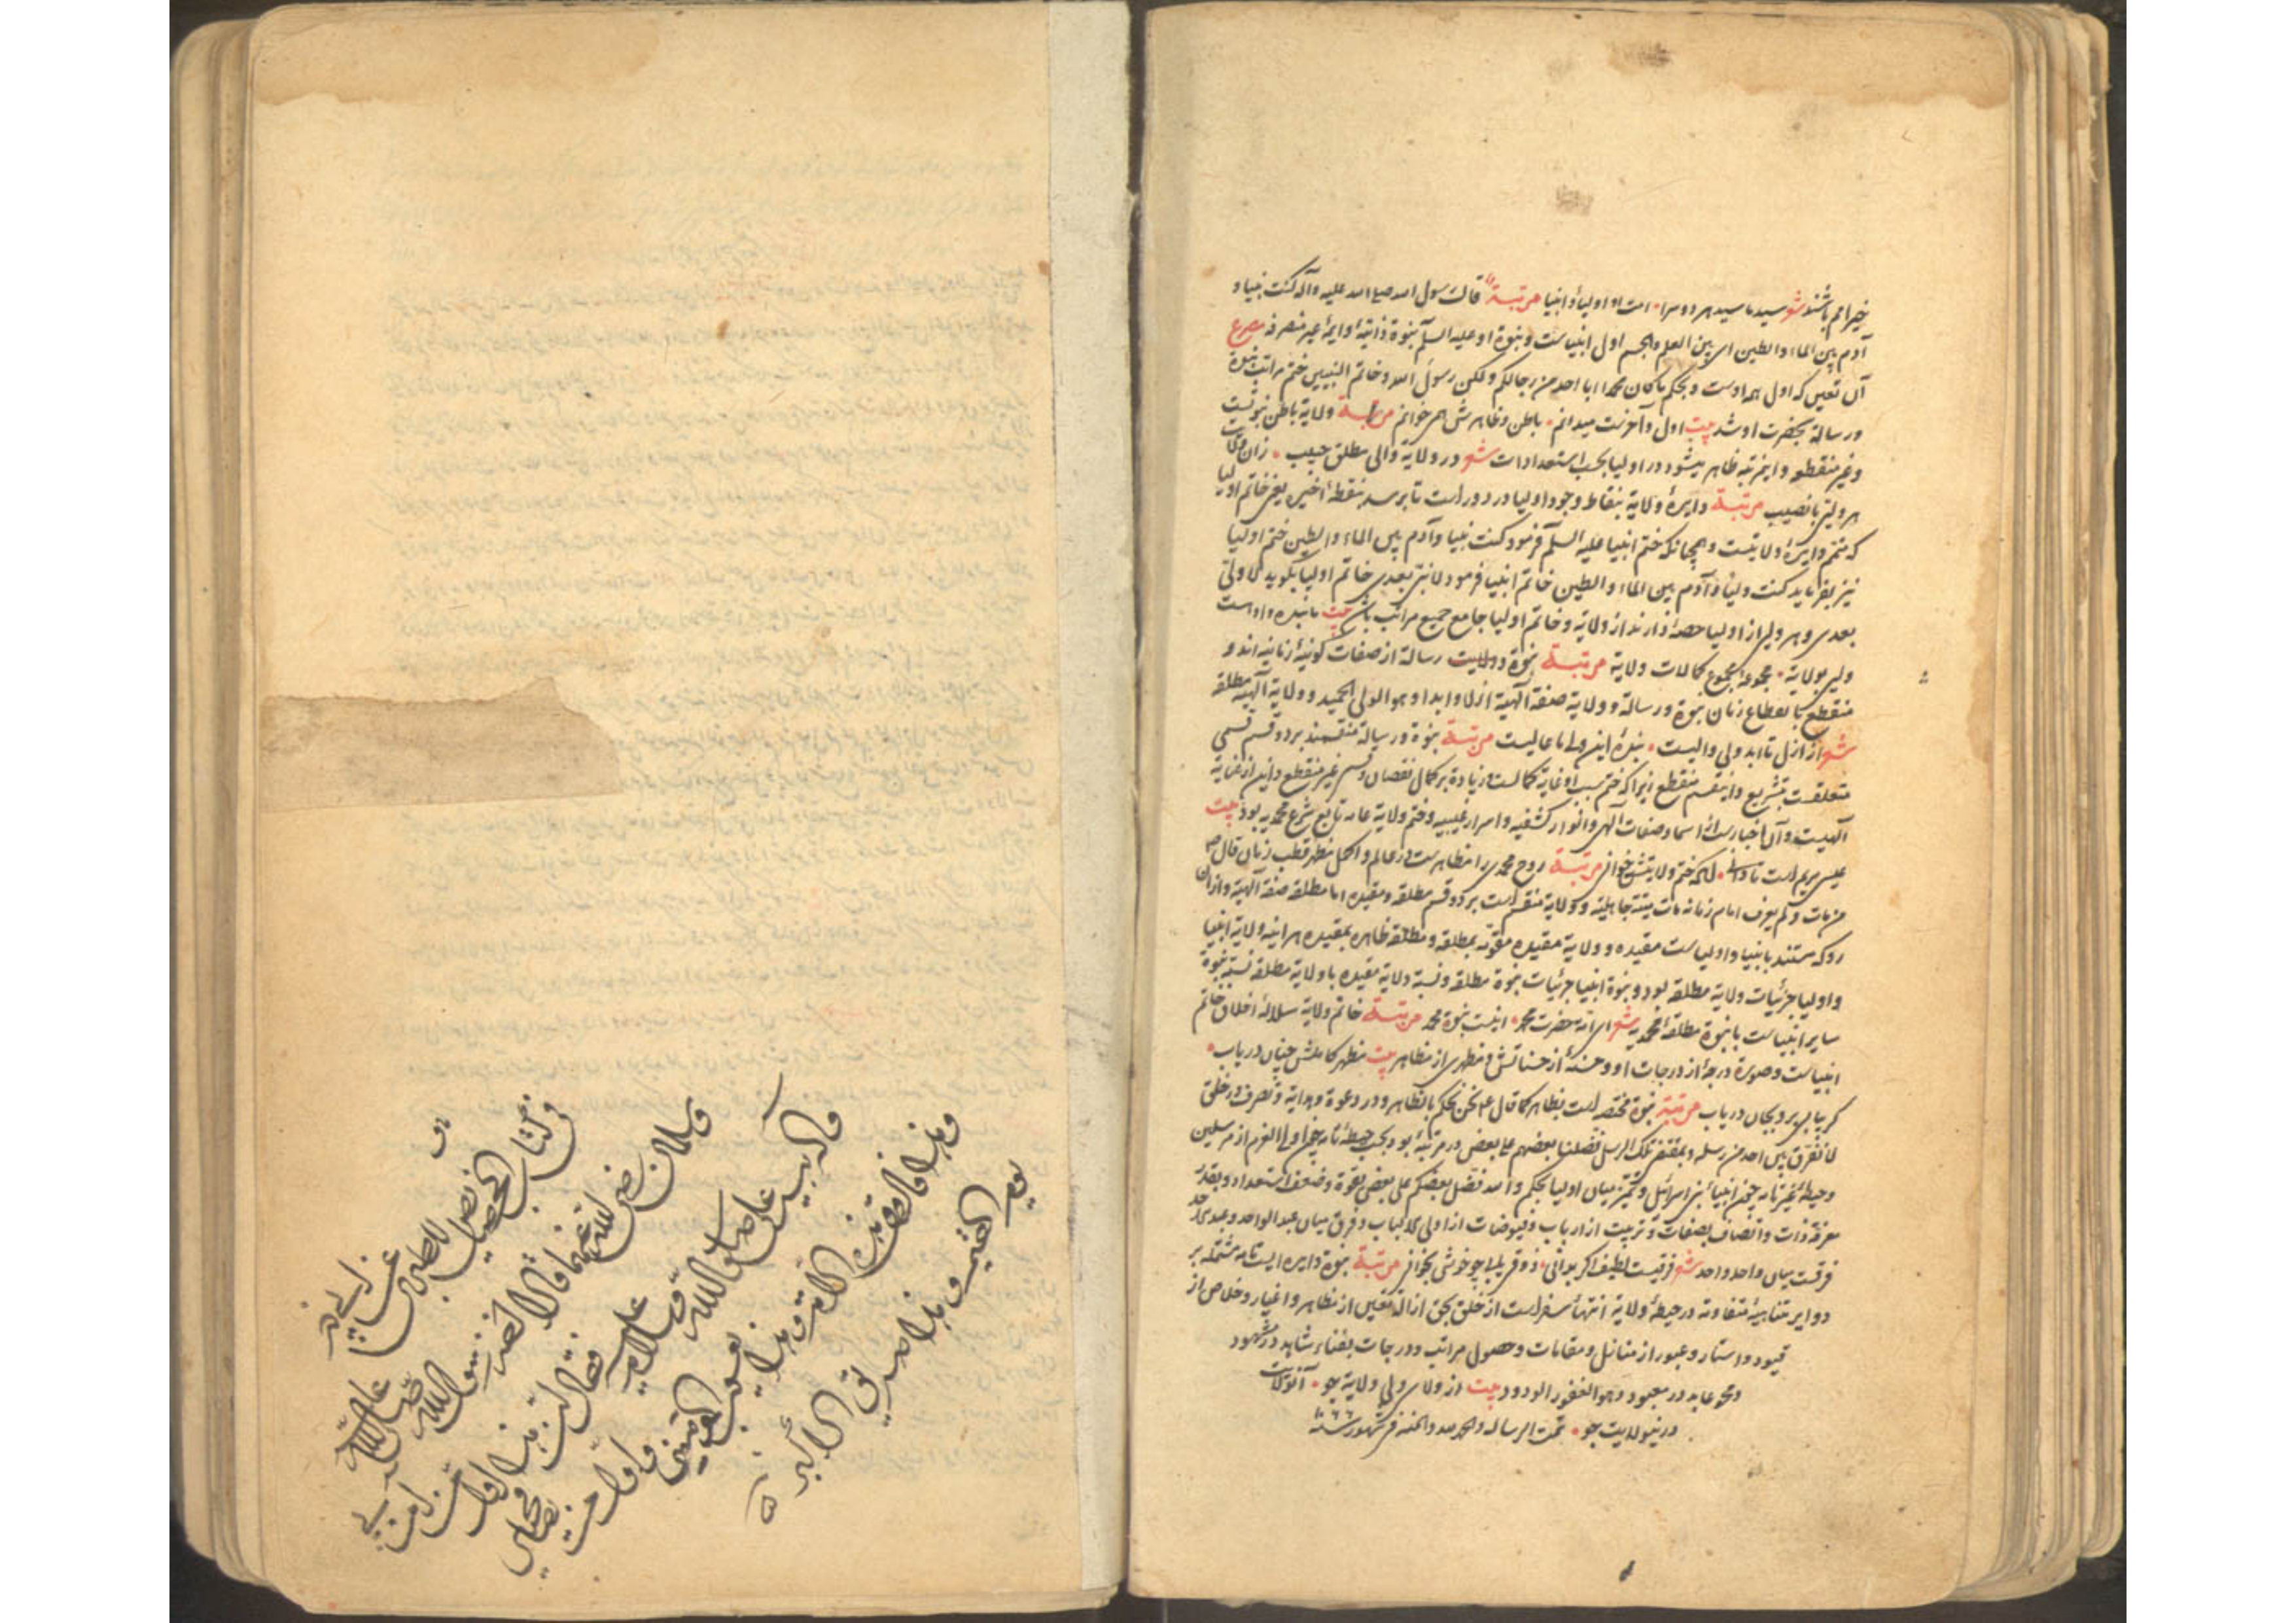 خیر امم باشند شعر سید ما سید هر دو سرا امت او اولیا و انبیا مرتبة قال رسول الله صلی الله علیه وآله کنت نبیا و
آدم بین الماء والطین ای بین العلم والجسم اول انبیاست و نبوة او علیه السلم نبوة ذاتیة دایمة غیر منصرفه مصرع
آن تعین که اول همه اوست و بحکم ما کان محمد ابا احد من رجالکم ولکن رسول الله وخاتم النبیین ختم مراتب نبوة
و رسالة بحضرت او شد بیت اول و آخرست میدانم باطن و ظاهرش همی خوانم مرتبة ولایة باطن نبوتست
و غیر منقطع و اینمرتبه ظاهر میشود در اولیا بحسب استعدادات شعر در ولایة والی مطلق حبیب زان
هر ولی با نصیب مرتبة دایرهٔ ولایة بنقاط وجود اولیا در دور است تا برسد بنقطهٔ اخیره یعنی خاتم اولیا
که متمم دایرهٔ ولایتست و همچنانکه ختم انبیا علیه السلم فرمود کنت نبیا وآدم بین الماء والطین ختم اولیا
نیز بفرماید کنت ولیا وآدم بین الماء والطین خاتم انبیا فرمود لا نبی بعدی خاتم اولیا بگوید لا ولی
بعدی و هر ولی از اولیا حصهٔ دارند از ولایة و خاتم اولیا جامع جمیع مراتب باشد بیت ما بنده و او است
ولی بولایة مجموعهٔ مجموع کمالات ولایة مرتبة نبوة و رسالة از صفات کونیهٔ زمانیه اند و
منقطع بانقطاع زمان نبوة و رسالة و ولایة صفة الهیة ازلا وابدا و هو الولی الحمید و ولایة الهیة مطلقه
شعر از ازل تا ابد ولی والیست بندهٔ این ولی ما عالیست مرتبة نبوة و رسالة منقسمند بر دو قسم قسمی
متعلقست بتشریع و اینقسم منقطع زیرا که ختم بسبب او غایة کمالست و زیادة بر کمال نقصان و قسم غیر منقطع و این از عنایة
الهیست و آن اخبارست از اسما و صفات الهی و انوار کشفیه و اسرار غیبیه و ختم ولایة عامه تابع شرع محمدیه بود بیت
عیسی مریم است تا دانی که ختم ولایتش خوانی مرتبة روح محمدی را مظاهر ست در عالم و اکمل مظهر قطب زمان قال ص
من مات ولم یعرف امام زمانه مات میتة جاهلیة و ولایة منقسم است بر دو قسم مطلقه و مقیده اما مطلقه صفة الهیة و از آن
رو که مستند بانبیا و اولیاست مقیده و ولایة مقیده مقومه بمطلقه و مطلقه ظاهره بمقیده هر اینه ولایة انبیا
و اولیا جزئیات ولایة مطلقه بود و نبوة انبیا جزئیات نبوة مطلقه و نسبة ولایة مقیده با ولایة مطلقه نسبة نبوة
سایر انبیاست با نبوة مطلقهٔ محمدیه شعر حضرت محمد اینست نبوة محمد مرتبة خاتم ولایة سلالهٔ اخلاق خاتم
انبیاست و صورة درجهٔ از درجات او و حسنهٔ از حسناتش و مظهری از مظاهر بیت مظهر کاملش چنان دریاب
گر بیابی برو بجان دریاب مرتبة نبوة مختصه است بظاهر کما قال ع نحن نحکم بالظاهر و در دعوة و هدایة و تصرف در خلق
لا نفرق بین احد من رسله و بمقتضی تلک الرسل فضلنا بعضهم علی بعض در مرتبهٔ بود بحسب حیطهٔ تامه چون اولو العزم از مرسلین
و حیطهٔ غیر تامه چون انبیاء بنی اسرائیل و تمیز میان اولیا بحکم والله فضل بعضکم علی بعض بقوة و ضعف استعداد و بقدر
معرفة ذات و اتصاف بصفات و تربیت از ارباب و فیوضات از اولی الالباب و فرق میان عبد الواحد و عبد الاحد
فرقست میان واحد و احد شعر فرقیست لطیف اگر بدانی ذوق یابی چو خوش بخوانی مرتبة نبوة دایره ایست تامه مشتمله بر
دوایر متناهیهٔ متفاوته در حیطهٔ ولایة انتهاء سفر است از خلق بحق ازالهٔ تعین از مظاهر و اغیار و خلاص از
قیود و استار و عبور از منازل و مقامات و حصول مراتب و درجات بفناء شاهد در مشهود
و محو عابد در معبود و هو الغفور الودود بیت از ولای ولی ولایة جو
در نبی ولایت جو تمت الرساله والحمد لله والمنة فی شهور سنة ١٠٦٦
فی کتاب الخصایص للطبری
وسلمان رضی الله عنهما قالا اخذ رسول الله صلی الله علیه
وآله بید علی صلوات الله وسلامه علیه فقال ان هذا اول من آمن بی
وهذا فاروق هذه الامة وهذا یعسوب المؤمنین واول من یصافحنی
یوم القیمة وهذا الصدیق الاکبر